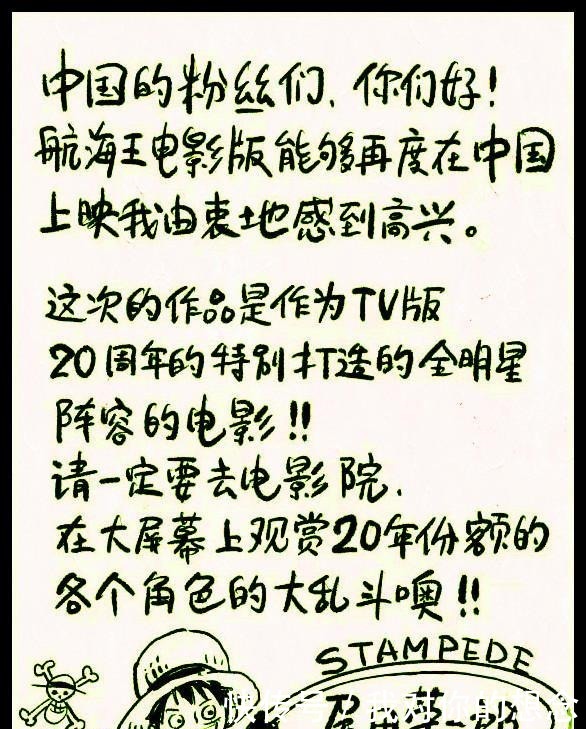 中国的粉丝们、你们好!
航海王电影版能够再度在中国
上映我由衷地感到高兴。
这次的作品是作为TV版
20周年的特别打造的全明星
阵容的电影!!
请一定要去电影院、
在大屏幕上观赏20年份额的
各个角色的大乱斗噢!!
STAMPEDE
尾田荣一郎
快传号/我对你的想念